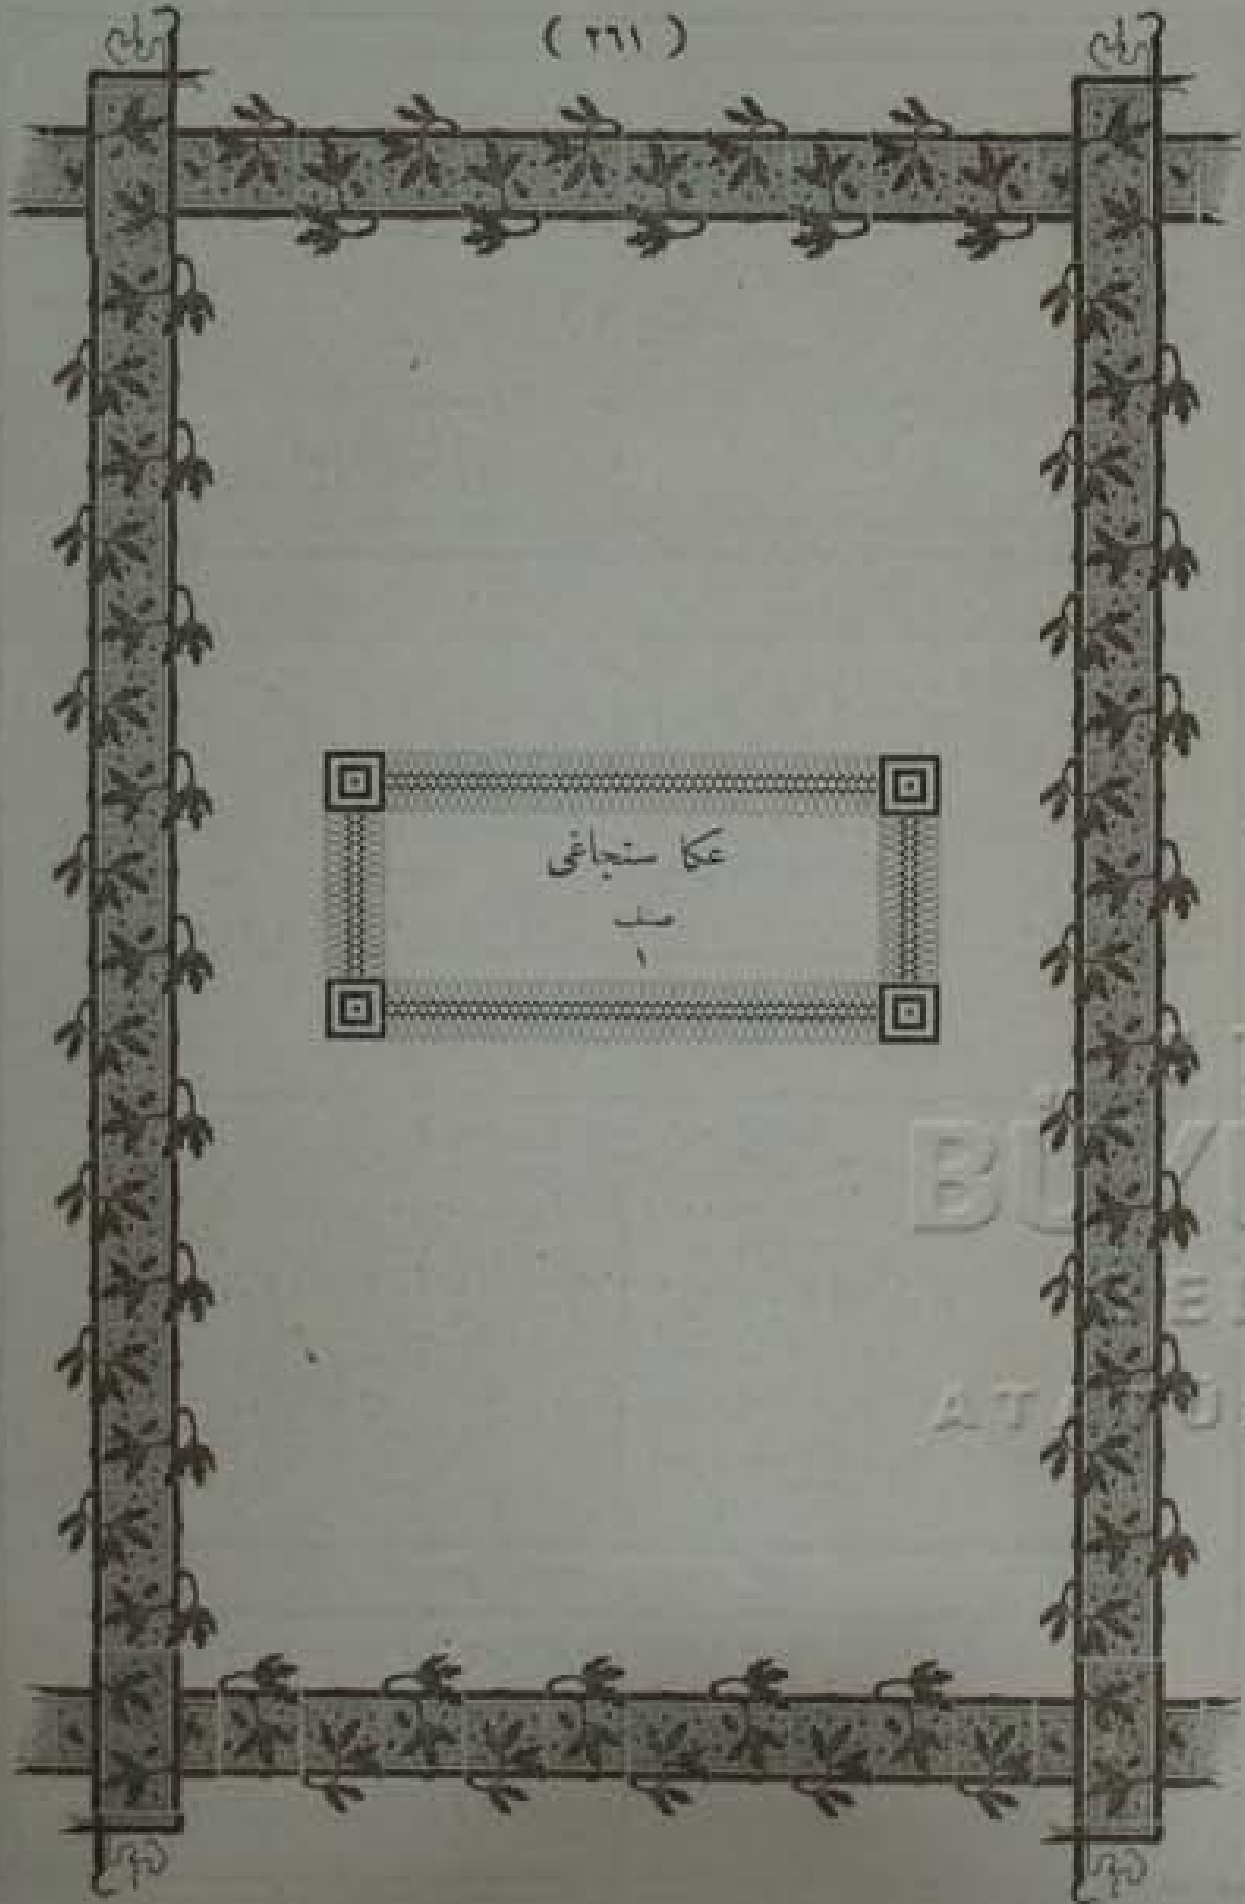 ( ٢٦١ )
عكا سنجاغى
صنف
١